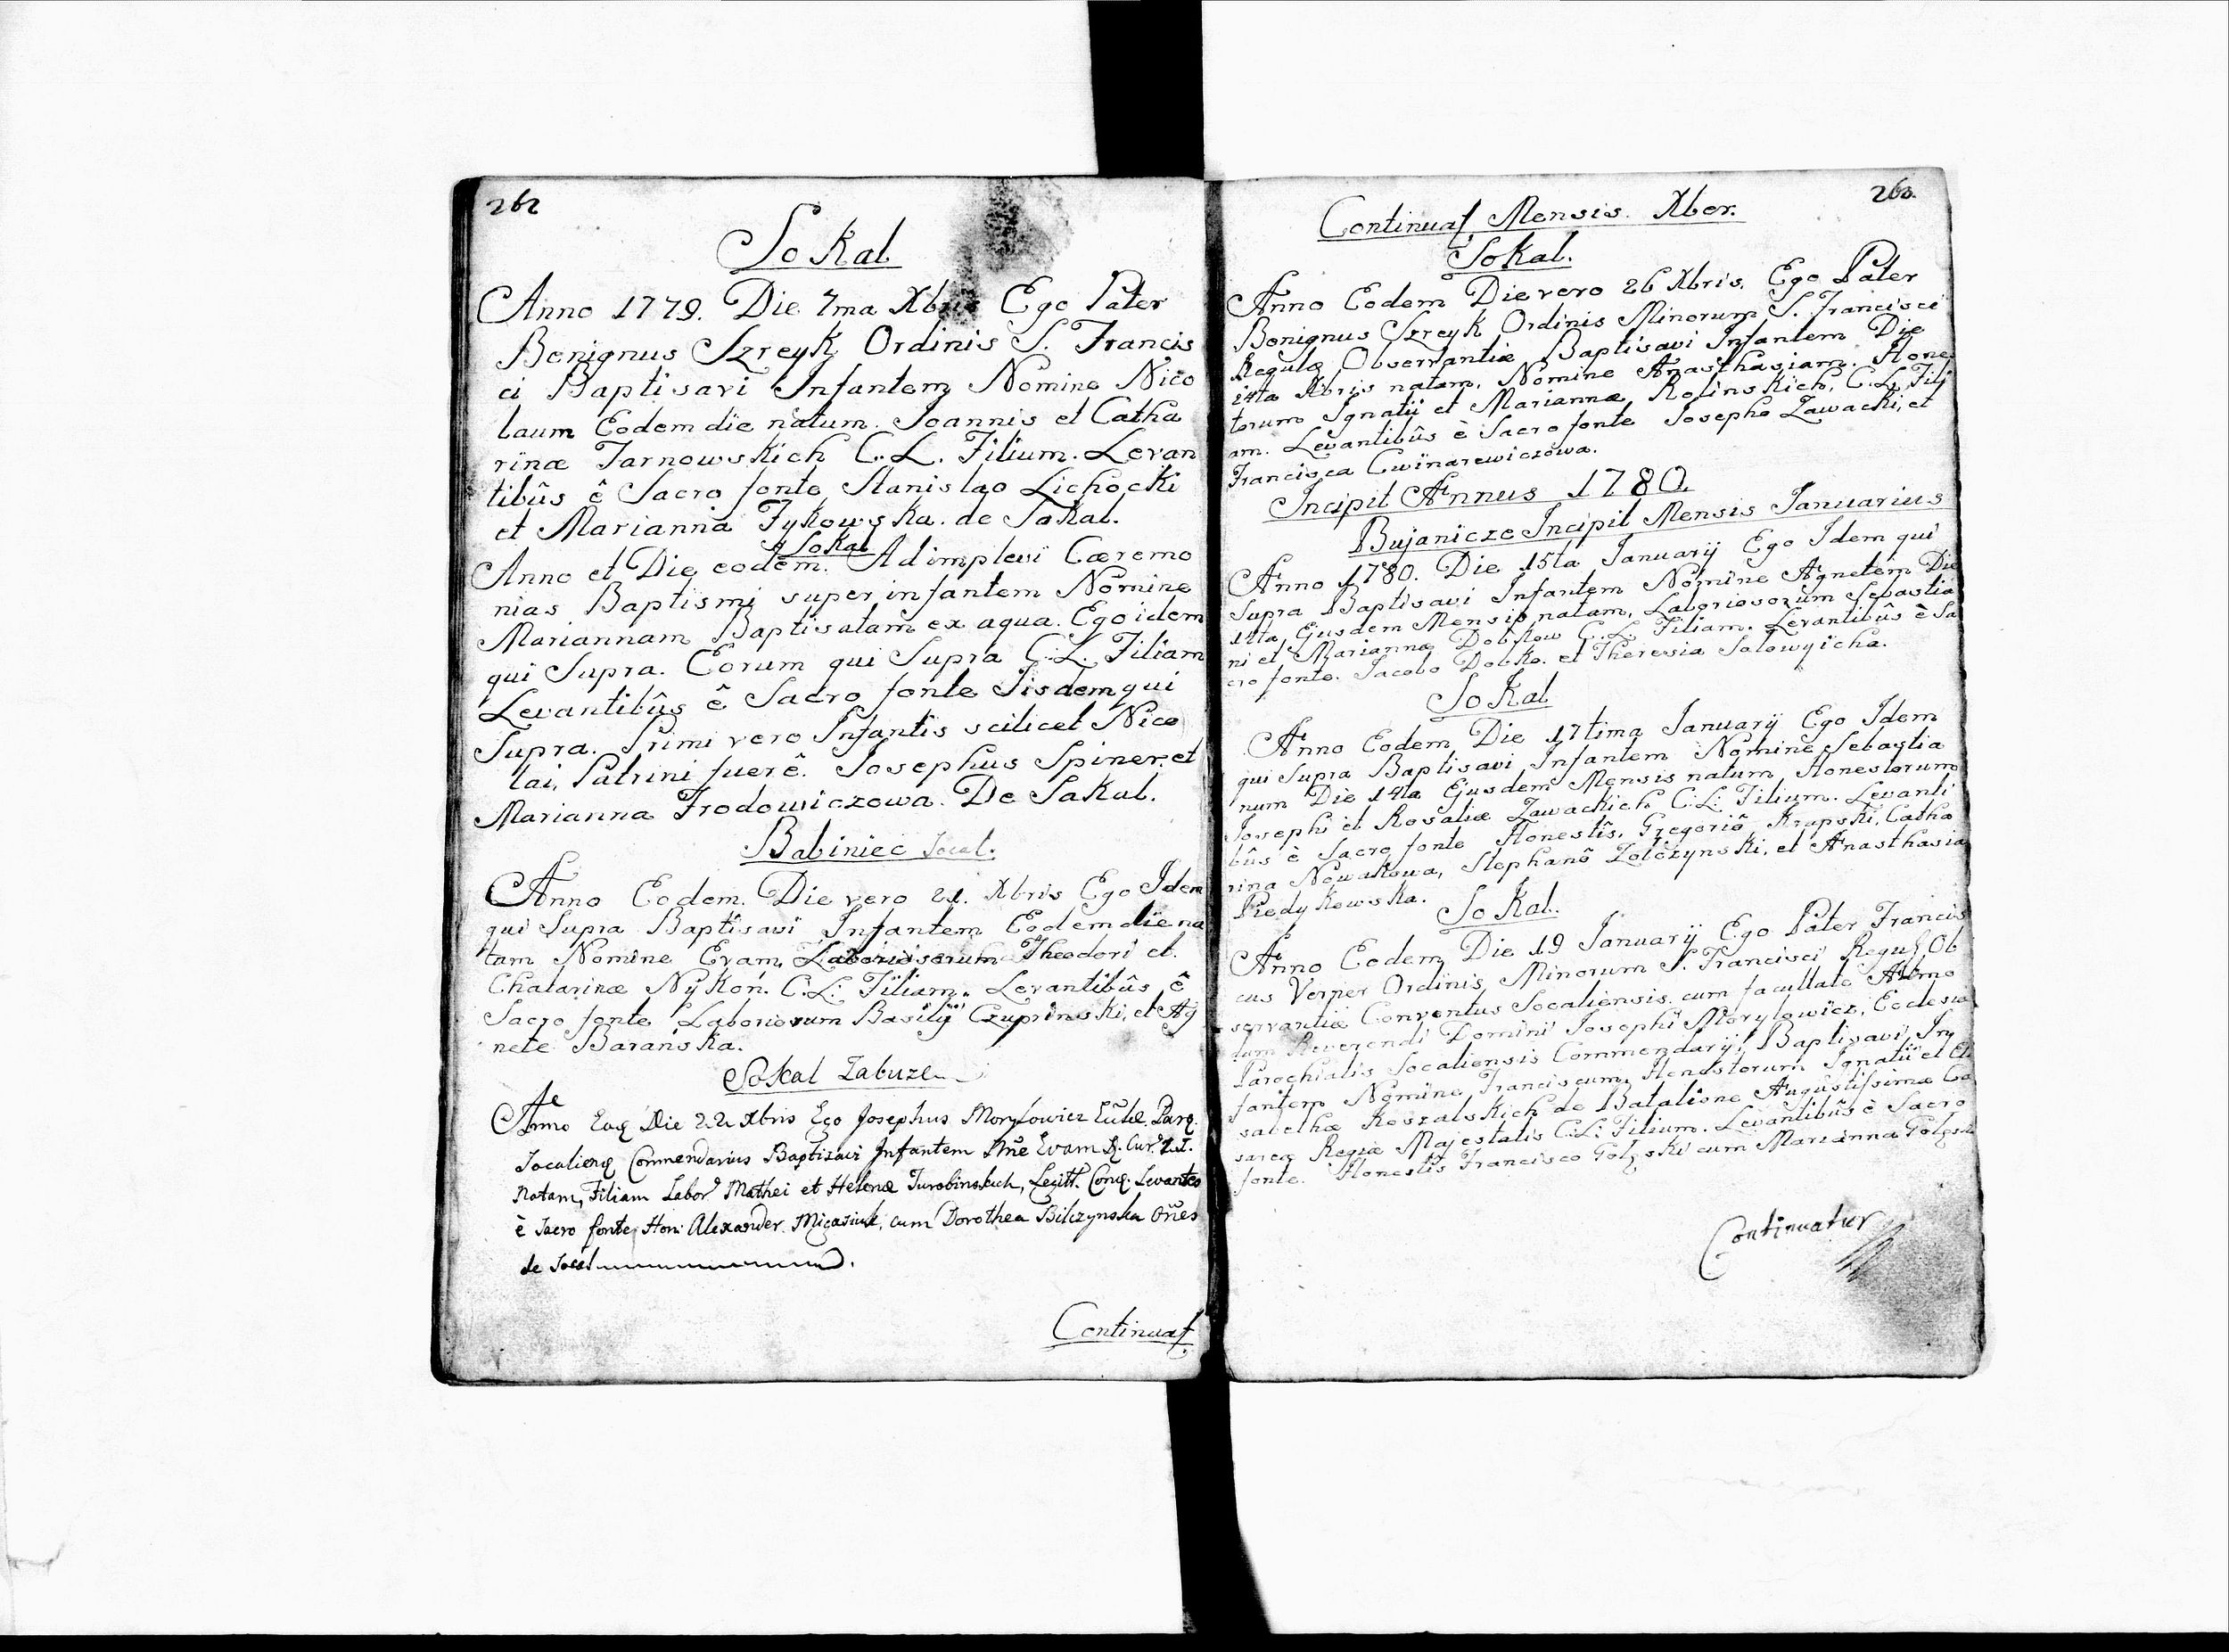 262
Sokal
Anno 1779. Die 7ma Xbris Ego Pater
Benignus Szreyk Ordinis S. Francis
ci Baptisavi Infantem Nomine Nico
laum Eodem die natum. Joannis et Catha
rinæ Tarnowskich C.L. Filium. Levan
tibûs ê Sacro fonte Stanislao Lichocki
et Marianna Tykowska. de Sokal.
Sokal
Anno et Die eodem. Adimplevi Cæremo
nias Baptismi super infantem Nomine
Mariannam Baptisatam ex aqua. Ego idem
qui Supra. Eorum qui Supra C.L. Filiam
Levantibûs ê Sacro fonte Iisdem qui
Supra. Primi vero Infantis scilicet Nico
lai, Patrini fuerê. Josephus Spiner et
Marianna Frodowiczowa. De Sakal.
Babiniec Socal.
Anno Eodem. Die vero 21. Xbris Ego Idem
qui Supra Baptisavi Infantem Eodem die na
tam Nomine Evam, Laboriosorum Theodori et
Chatarinæ Nykón. C.L. Filiam. Levantibûs ê
Sacro fonte Laboriosum Basilÿ Czuprinski, et Ag
nete Baranska.
Sokal Zabuze
Anno Eoq Die 22 Xbris Ego Josephus Morylowicz Eccłæ Parq.
Socalienq Commendarius Baptizavi Infantem Nñe Evam
Natam, Filiam Labor Mathei et Helenæ Turobinskich, Legitt. Conq. Levantes
è Sacro fonte, Hon: Alexander Micasiuk, cum Dorothea Bilczynska Oñes
de Socal
Continuat
263.
Continuat Mensis. Xber.
Sokal.
Anno Eodem Die vero 26 Xbris. Ego Pater
Benignus Szreyk Ordinis Minorum S. Francisci
Regulæ Observantiæ Baptisavi Infantem Die
24ta Xbris natam, Nomine Anasthasiam. Hones
torum Ignatii et Mariannæ Rolinskich, C.L. Fili
am. Levantibûs è Sacro fonte Josepho Zawacki, et
Francisca Cwinarewiczowa.
Incipit Annus 1780.
Bujanicze Incipit Mensis Januarius
Anno 1780. Die 15ta Januarÿ Ego Idem qui
Supra Baptisavi Infantem Nomine Agnetem Die
14ta Ejusdem Mensis natam, Laboriosorum Sebastia
ni et Mariannæ C.L. Filiam. Levantibûs è Sa
cro fonte. Jacobo Dobko. et Theresia Solowyicha.
Sokal
Anno Eodem Die 17tima Januarÿ Ego Idem
qui Supra Baptisavi Infantem Nomine Sebastia
num Die 14ta Ejusdem Mensis natum, Honestorum
Josephi et Rosaliæ Zawackich C.L. Filium. Levanti
bûs è Sacro fonte Honestîs, Gregoriô Krupski, Catha
rina Nowakowa, Stephanô Zolczynski, et Anasthasia
Piedykowska.
Sokal.
Anno Eodem Die 19 Januarÿ Ego Pater Francis
cus Verper Ordinis Minorum S. Francisci Regul Ob
servantiæ Conventus Socaliensis cum facultate Admo
dum Reverendi Domini Josephi Morylowicz, Ecclesiæ
Parochialis Socaliensis Commendarÿ, Baptisavi In
fantem Nomine Franciscum, Honestorum Ignatii et Eli
sabethæ Roszalskich de Bataliône Augustissimæ Cæ
sareæ Regiæ Majestatis C.L. Filium. Levantibûs è Sacro
fonte. Honestis Francisco Golski cum Marianna
Continuatur